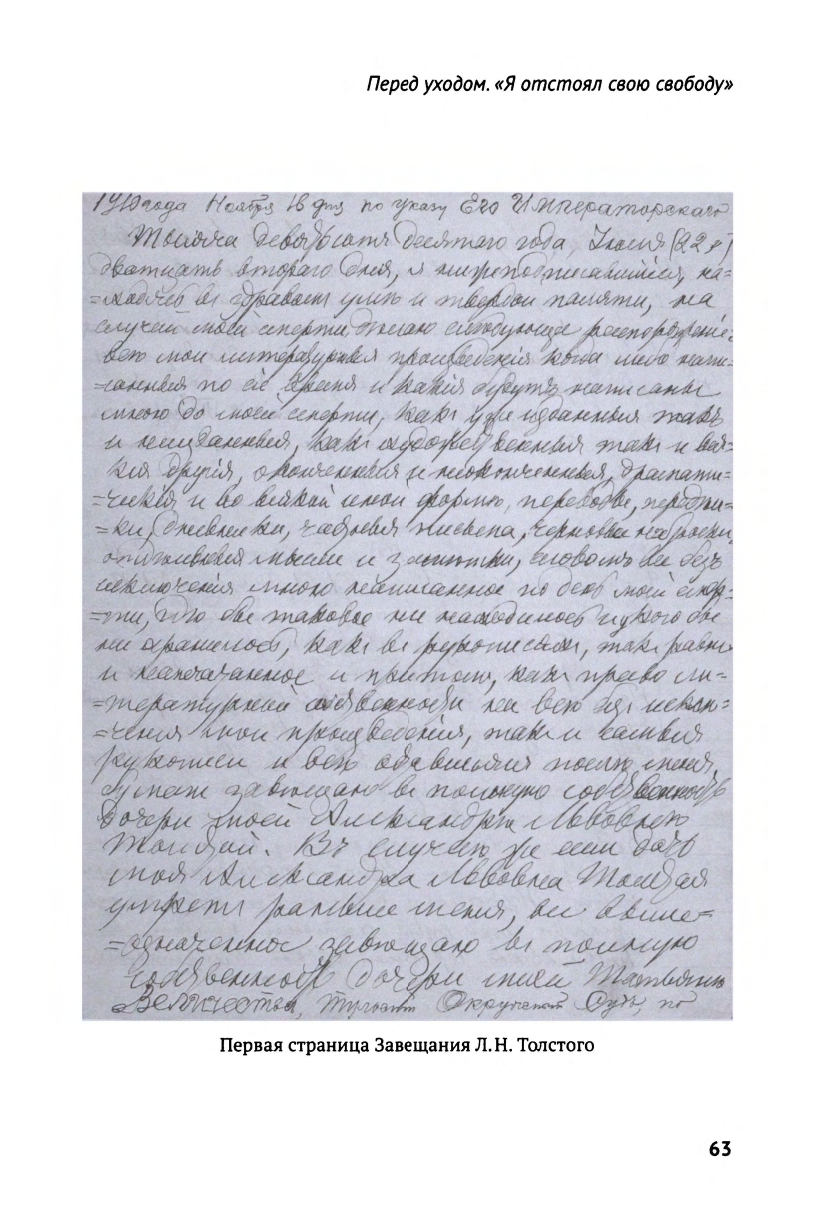 Перед уходом. «Я отстоял свою свободу»
1910 года Ноября 16 дня по указу Его Императорскаго
Тысяча девятьсот десятаго года, Июля (22 д)
двадцать втораго дня, я нижеподписавшийся, на-
=ходясь в здравом уме и твердой памяти, на
случай моей смерти делаю следующее распоряжение:
все мои литературныя произведения когда либо напи-
=санныя по сие время и какия будут написаны
мною до моей смерти, как уже изданныя так
и неизданныя, как художественныя так и вся-
кия другия, оконченныя и неоконченныя, драмати-
=ческия и во всякой иной форме, переводы, передел-
=ки, дневники, частныя письма, черновые наброски,
отдельныя мысли и заметки, словом все без
исключения мною написанное по день моей смер-
=ти, где бы таковое ни находилось и у кого бы
ни хранилось, как в рукописях, так равно
и напечатанное и притом, как право ли-
=тературной собственности на все без исклю-
=чения мои произведения, так и самыя
рукописи и все оставшияся после меня
бумаги завещаю в полную собственность
дочери моей Александре Львовне
Толстой. В случае же если дочь
моя Александра Львовна Толстая
умрет раньше меня, все выше=
=означенное завещаю в полную
собственность дочери моей Татьяне
Величества, Тульский Окружный Суд, по
Первая страница Завещания Л. Н. Толстого
63